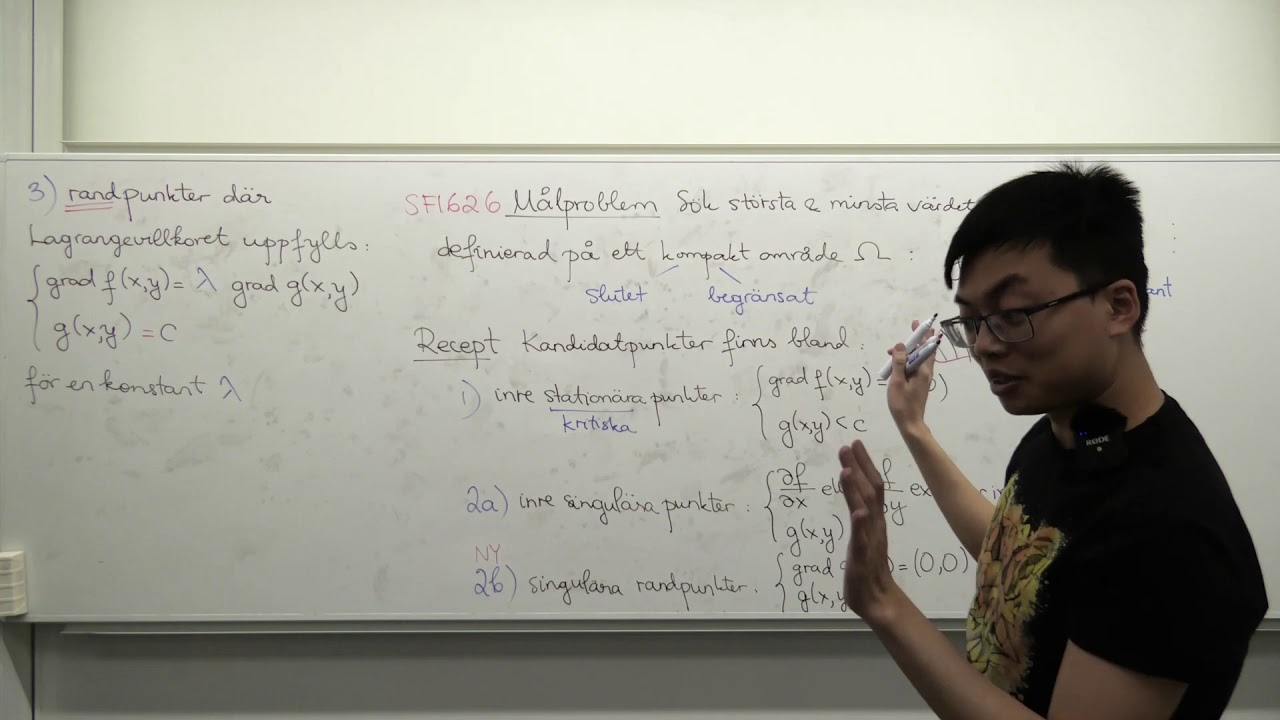 3) randpunkter där
Lagrangevillkoret uppfylls:
grad f(x,y) = λ grad g(x,y)
g(x,y) = C
för en konstant λ
SF1626 Målproblem Sök största & minsta värdet
definierad på ett kompakt område Ω :
slutet begränsat
Recept Kandidatpunkter finns bland:
1) inre stationära punkter : grad f(x,y) = 0)
kritiska g(x,y) < C
2a) inre singulära punkter : ∂f/∂x ∂y
g(x,y)
NY
2b) singulära randpunkter. grad = (0,0)
g(x,y
RØDE